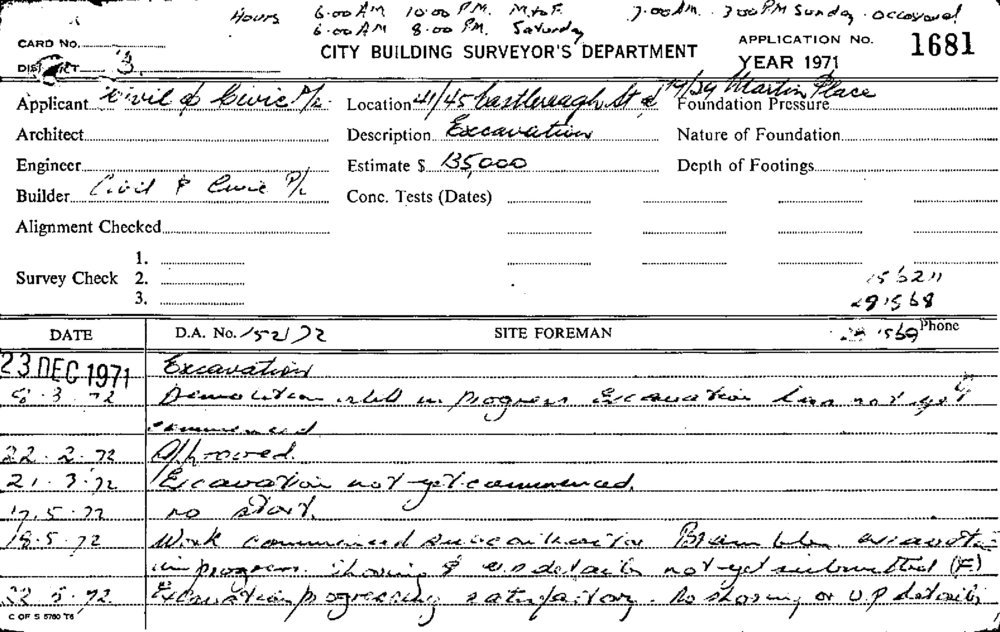 Hours 6.00 AM 10.00 PM. M to F. 7.00 AM. 3 00 PM Sunday. occasional
6.00 AM 8.00 PM. Saturday
CARD No. CITY BUILDING SURVEYOR'S DEPARTMENT APPLICATION No. 1681
DISTRICT 3. YEAR 1971
Applicant Civil & Civic P/L Location 41/45 Castlereagh St & 19/29 Martin Place Foundation Pressure
Architect Description Excavation Nature of Foundation
Engineer Estimate $ 135,000 Depth of Footings
Builder Civil & Civic P/L Conc. Tests (Dates)
Alignment Checked
1.
Survey Check 2. 156211
3. 291568
DATE D.A. No. 152/72 SITE FOREMAN 28 1569 Phone
23 DEC 1971 Excavation
8.3.72 Demolition still in progress Excavation has not yet
commenced
22.2.72 Approved.
21.3.72 Excavation not yet commenced.
17.5.72 no start.
18.5.72 Work commenced subcontractor excavation
in progress. Shoring & u.p details not yet submitted (F)
22 5.72 Excavation progressing satisfactory. No shoring or U.P details
C OF S 5780 T6